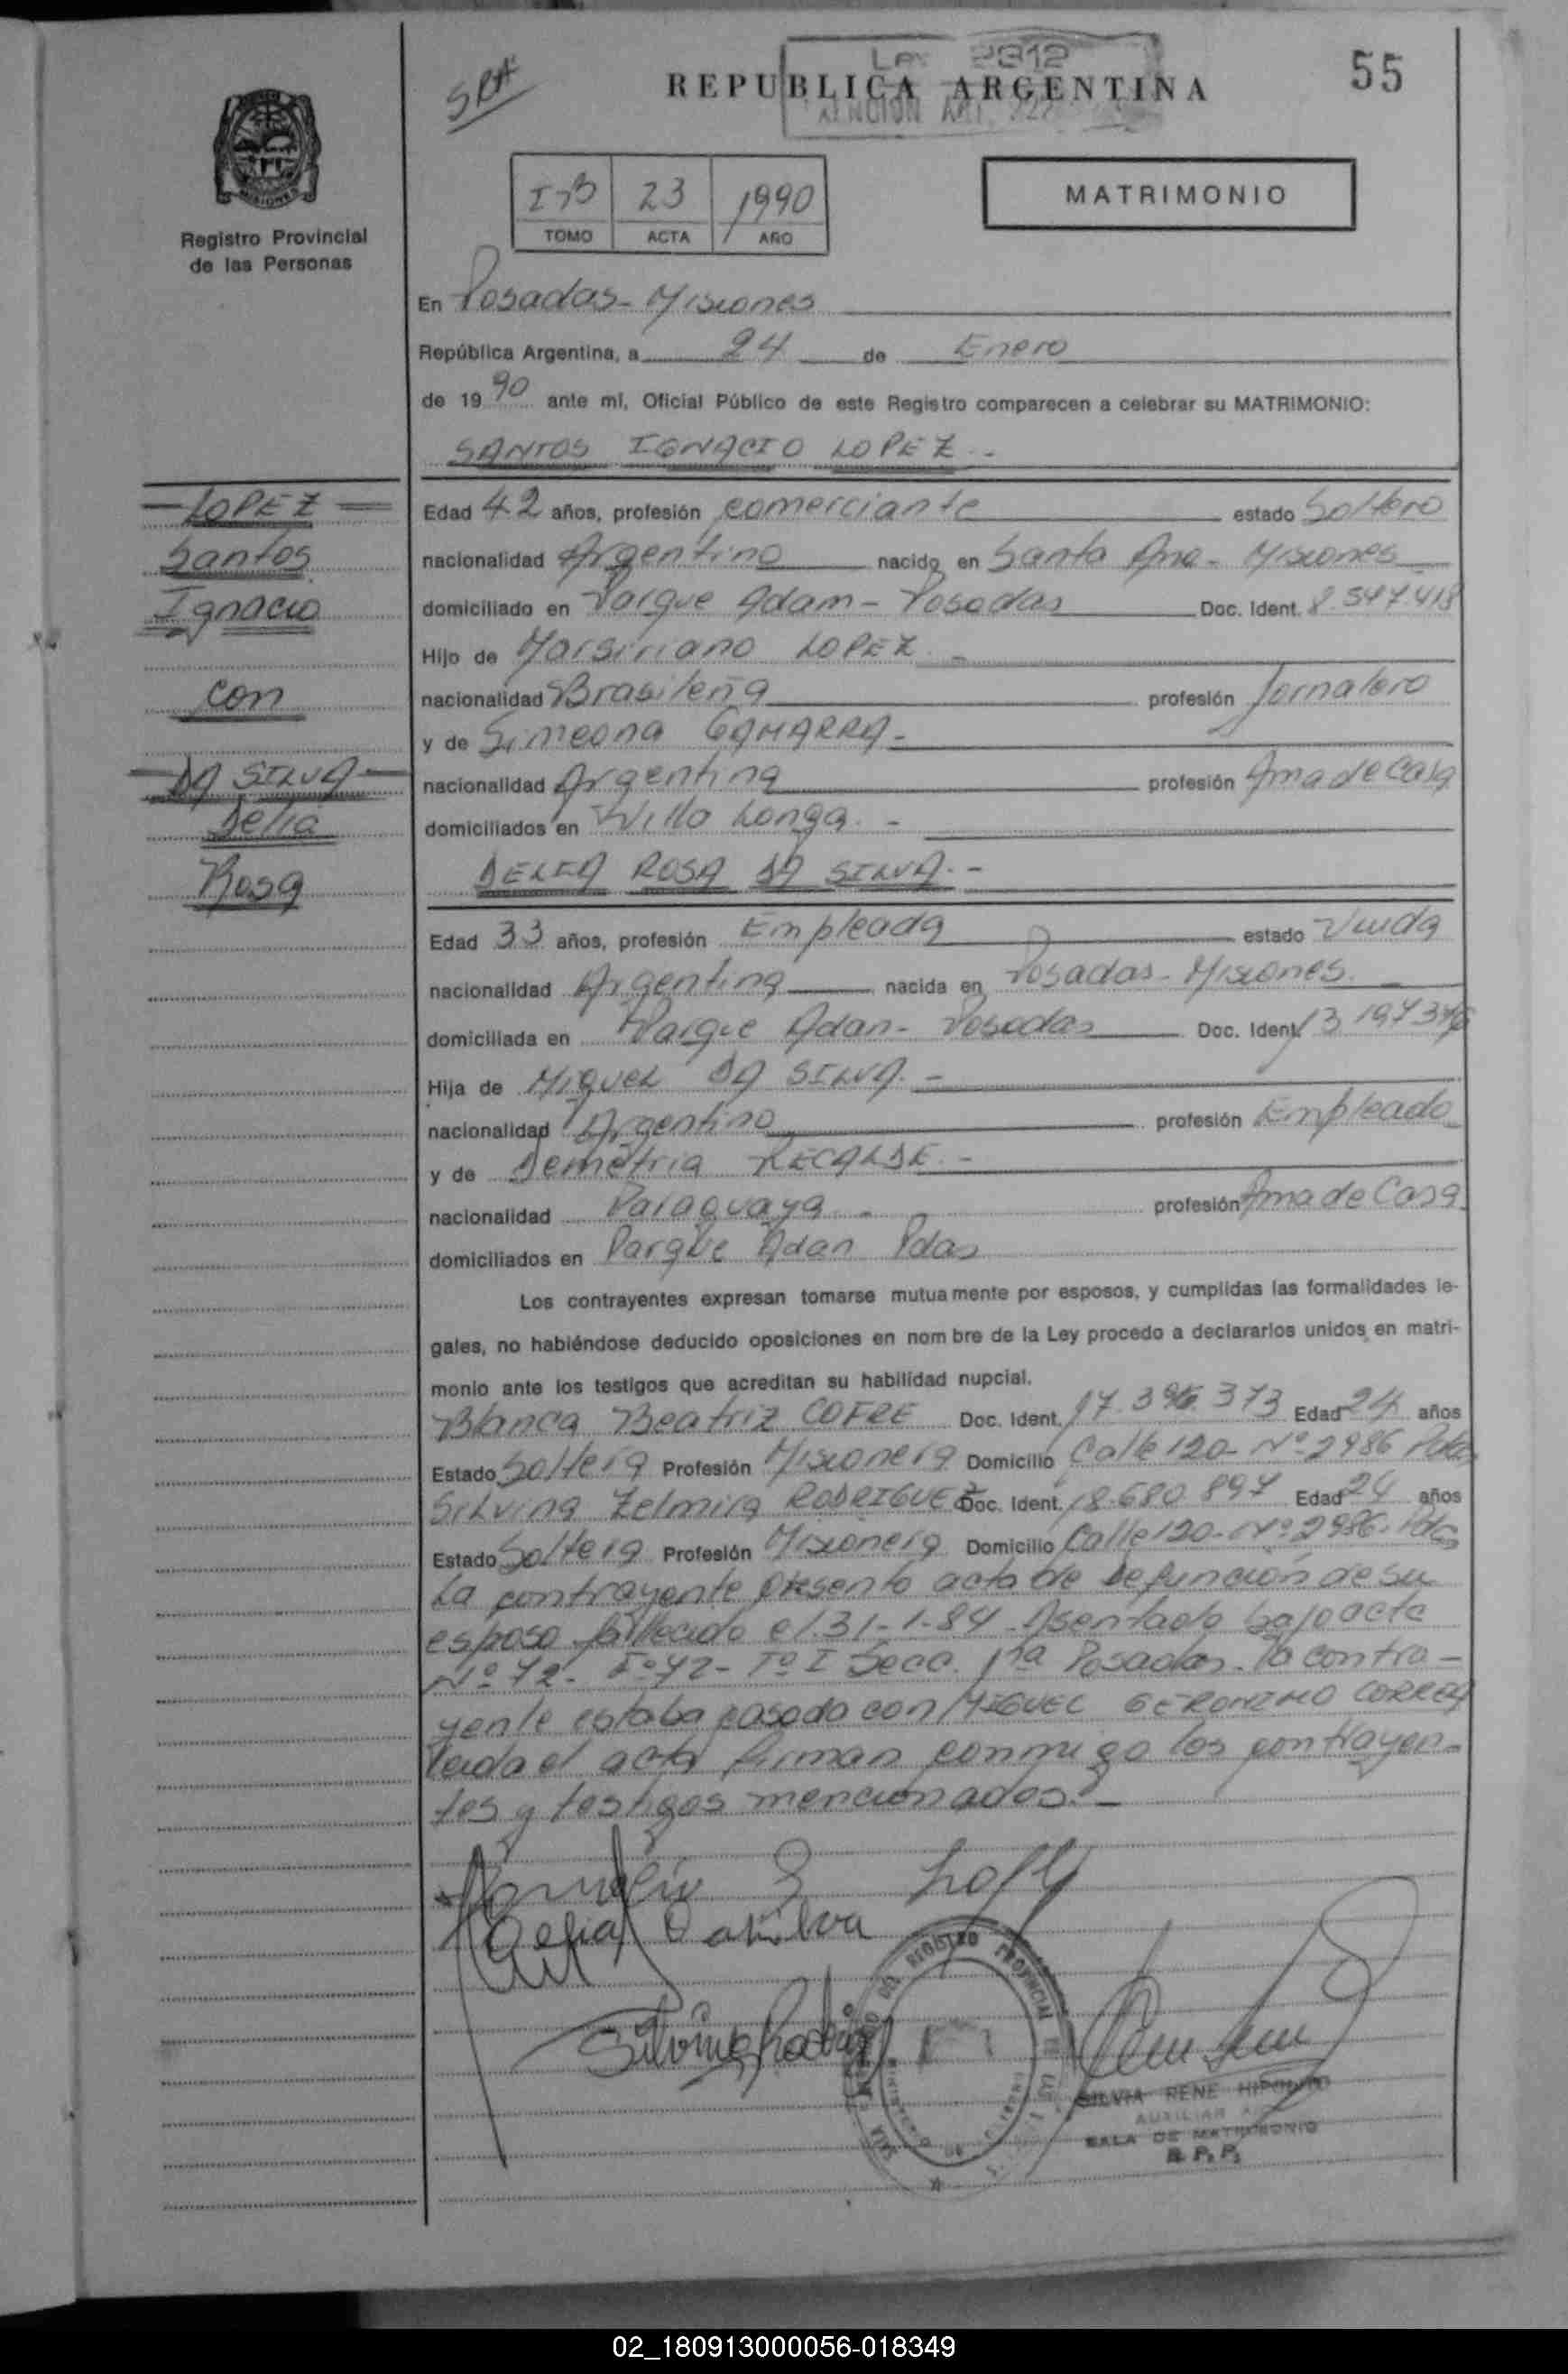 LEY 2312
SRA
REPUBLICA ARGENTINA
55
ATENCION ART.
I-B 23 1990
TOMO ACTA AÑO
MATRIMONIO
MISIONES
Registro Provincial
de las Personas
En Posadas - Misiones
República Argentina, a 24 de Enero
de 19 90 ante mí, Oficial Público de este Registro comparecen a celebrar su MATRIMONIO:
SANTOS IGNACIO LOPEZ.-
LOPEZ
Santos
Ignacio
con
DA SILVA
Delia
Rosa
Edad 42 años, profesión comerciante estado Soltero
nacionalidad Argentino nacido en Santa Ana - Misiones
domiciliado en Parque Adam - Posadas Doc. Ident. 8.547.418
Hijo de Marsiriano LOPEZ.-
nacionalidad Brasileña profesión Jornalero
y de Simeona GAMARRA.-
nacionalidad Argentina profesión Ama de Casa
domiciliados en Villa Longa.-
DELIA ROSA DA SILVA.-
Edad 33 años, profesión Empleada estado Viuda
nacionalidad Argentina nacida en Posadas - Misiones.
domiciliada en Parque Adan - Posadas Doc. Ident. 13.197.376
Hija de Miguel DA SILVA.-
nacionalidad Argentino profesión Empleado
y de Demetria RECALDE.-
nacionalidad Paraguaya.- profesión Ama de Casa
domiciliados en Parque Adan Pdas
Los contrayentes expresan tomarse mutuamente por esposos, y cumplidas las formalidades le-
gales, no habiéndose deducido oposiciones en nom bre de la Ley procedo a declararlos unidos en matri-
monio ante los testigos que acreditan su habilidad nupcial.
Blanca Beatriz COFRE Doc. Ident. 17.396.373 Edad 24 años
Estado Soltera Profesión Misionera Domicilio Calle 120 - Nº 2986 Pdas
Silvina Zelmira RODRIGUEZ Doc. Ident. 18.680.897 Edad 24 años
Estado Soltera Profesión Misionera Domicilio Calle 120 - Nº 2986 - Pdas
La contrayente presento acta de defunción de su
esposo fallecido el 31-1-84. Asentado bajo acta
Nº 72 - Fº 72 - Tº I Secc. 1ra Posadas. La contra-
yente estaba casada con MIGUEL GERONIMO CORREA
leida el acta firman conmigo los contrayen-
tes y testigos mencionados.-
Delia Dasilva
Silvina Rodrig
DEL REGISTRO PROVINCIAL DE LAS
SILVIA RENE HIPOLITO
AUXILIAR
SALA DE MATRIMONIO
R. P. P.
02_180913000056-018349